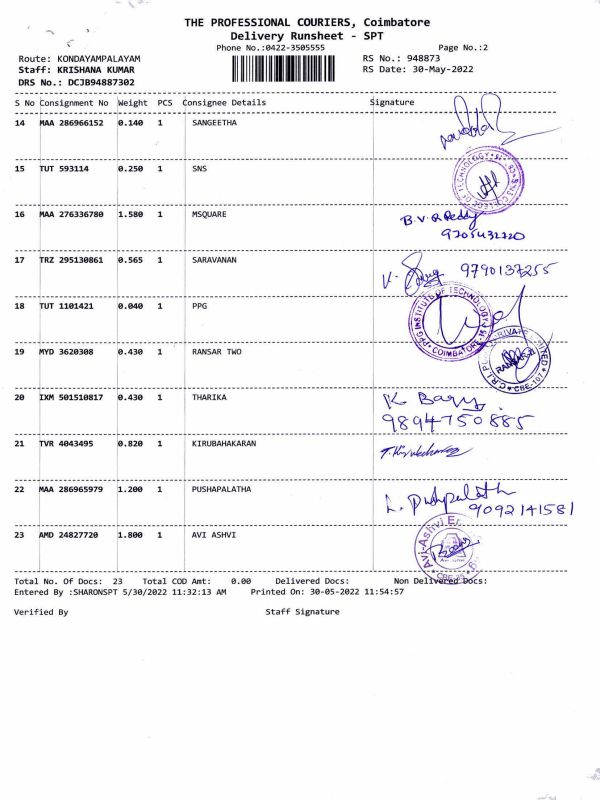 THE PROFESSIONAL COURIERS, Coimbatore
Delivery Runsheet - SPT
Phone No.:0422-3505555 Page No.:2
Route: KONDAYAMPALAYAM RS No.: 948873
Staff: KRISHANA KUMAR RS Date: 30-May-2022
DRS No.: DCJB94887302
S No Consignment No Weight PCS Consignee Details Signature
14 MAA 286966152 0.140 1 SANGEETHA
15 TUT 593114 0.250 1 SNS
16 MAA 276336780 1.580 1 MSQUARE B.V.R.Reddy
17 TRZ 295130861 0.565 1 SARAVANAN 9790137255
18 TUT 1101421 0.040 1 PPG
PPG INSTITUTE OF TECHNOLOGY COIMBATORE
19 MYD 3620308 0.430 1 RANSAR TWO
CBE-107
20 IXM 501510817 0.430 1 THARIKA
9894750885
21 TVR 4043495 0.820 1 KIRUBAHAKARAN
22 MAA 286965979 1.200 1 PUSHPALATHA
9092141581
23 AMD 24827720 1.800 1 AVI ASHVI
Total No. Of Docs: 23 Total COD Amt: 0.00 Delivered Docs: Non Delivered Docs:
Entered By :SHARONSPT 5/30/2022 11:32:13 AM Printed On: 30-05-2022 11:54:57
Verified By Staff Signature